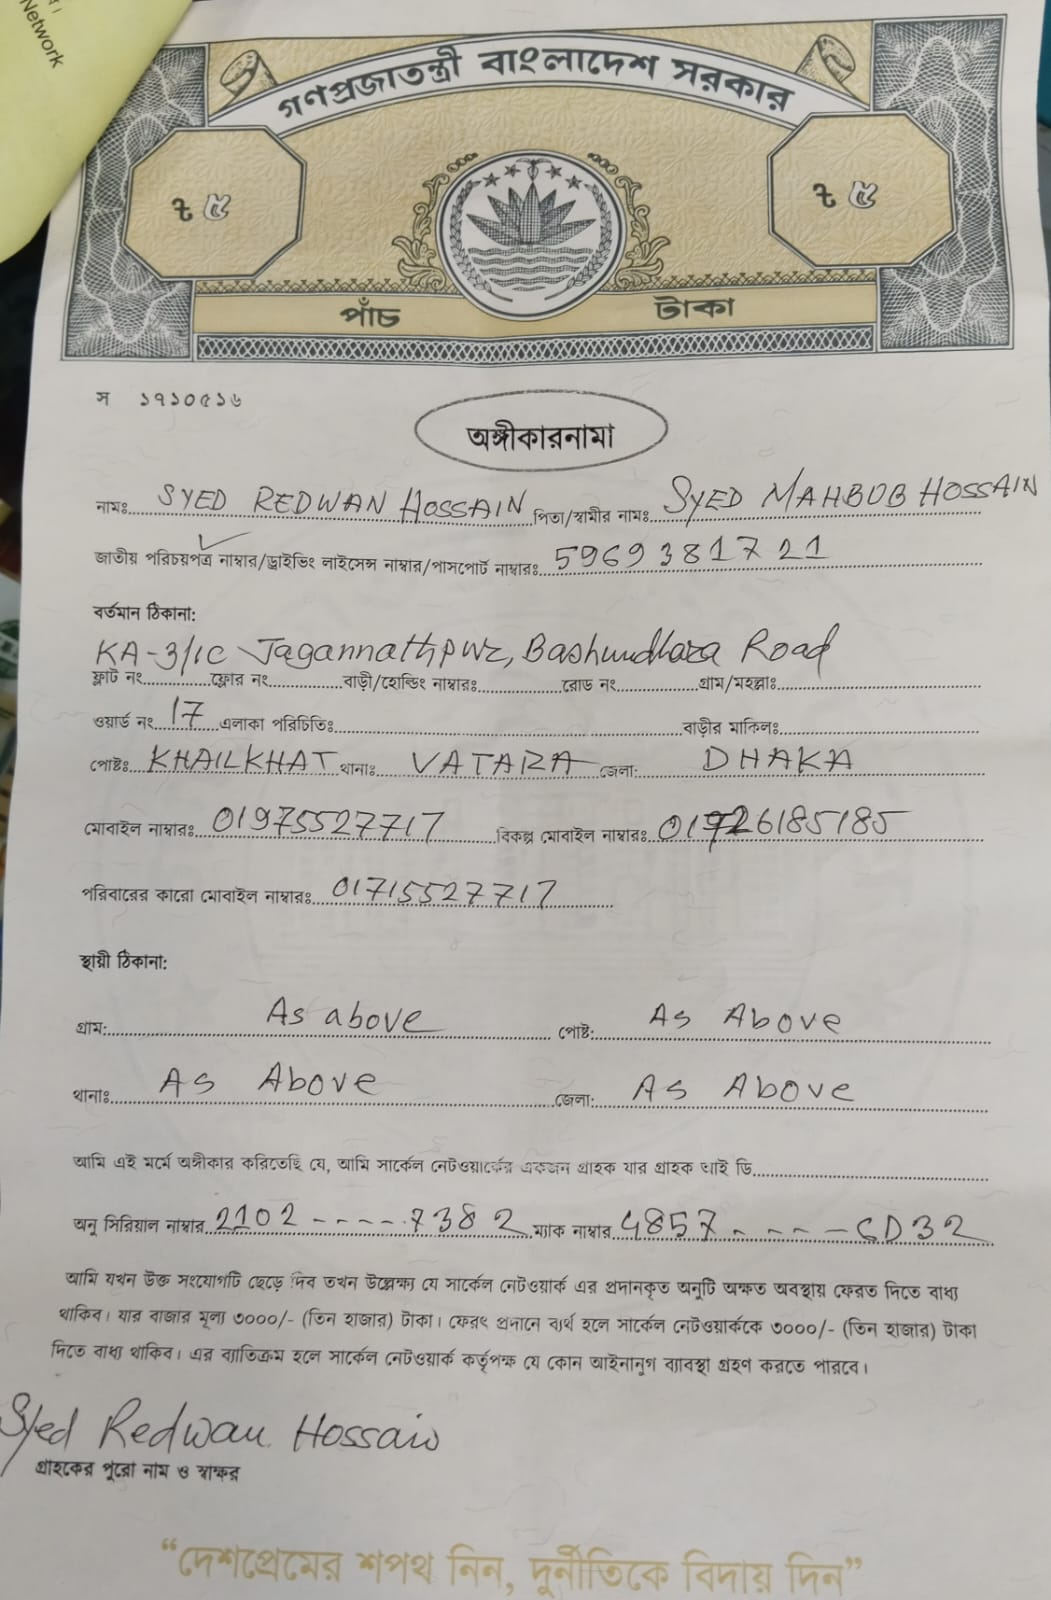 Network
গণপ্রজাতন্ত্রী বাংলাদেশ সরকার
৳ ৫ ৳ ৫
পাঁচ টাকা
স ১৭১০৫১৬
অঙ্গীকারনামা
নামঃ SYED REDWAN HOSSAIN পিতা/স্বামীর নামঃ SYED MAHBUB HOSSAIN
জাতীয় পরিচয়পত্র নাম্বার/ড্রাইভিং লাইসেন্স নাম্বার/পাসপোর্ট নাম্বারঃ 5969381721
বর্তমান ঠিকানা:
KA-3/1C Jagannathpur, Bashundhara Road
ফ্লাট নং ফ্লোর নং বাড়ী/হোল্ডিং নাম্বারঃ রোড নং গ্রাম/মহল্লাঃ
ওয়ার্ড নং 17 এলাকা পরিচিতিঃ বাড়ীর মালিকঃ
পোষ্টঃ KHAILKHAT থানাঃ VATARA জেলা: DHAKA
মোবাইল নাম্বারঃ 01975527717 বিকল্প মোবাইল নাম্বারঃ 01926185185
পরিবারের কারো মোবাইল নাম্বারঃ 01715527717
স্থায়ী ঠিকানা:
গ্রাম: As above পোষ্ট: As Above
থানাঃ As Above জেলা: As Above
আমি এই মর্মে অঙ্গীকার করিতেছি যে, আমি সার্কেল নেটওয়ার্কের একজন গ্রাহক যার গ্রাহক আই ডি
অনু সিরিয়াল নাম্বার 2102 - - - - - 7382 ম্যাক নাম্বার 4857 - - - - - CD32
আমি যখন উক্ত সংযোগটি ছেড়ে দিব তখন উল্লেক্ষ্য যে সার্কেল নেটওয়ার্ক এর প্রদানকৃত অনুটি অক্ষত অবস্থায় ফেরত দিতে বাধ্য
থাকিব। যার বাজার মূল্য ৩০০০/- (তিন হাজার) টাকা। ফেরৎ প্রদানে ব্যর্থ হলে সার্কেল নেটওয়ার্ককে ৩০০০/- (তিন হাজার) টাকা
দিতে বাধ্য থাকিব। এর ব্যাতিক্রম হলে সার্কেল নেটওয়ার্ক কর্তৃপক্ষ যে কোন আইনানুগ ব্যাবস্থা গ্রহণ করতে পারবে।
Syed Redwan Hossain
গ্রাহকের পুরো নাম ও স্বাক্ষর
“দেশপ্রেমের শপথ নিন, দুর্নীতিকে বিদায় দিন”